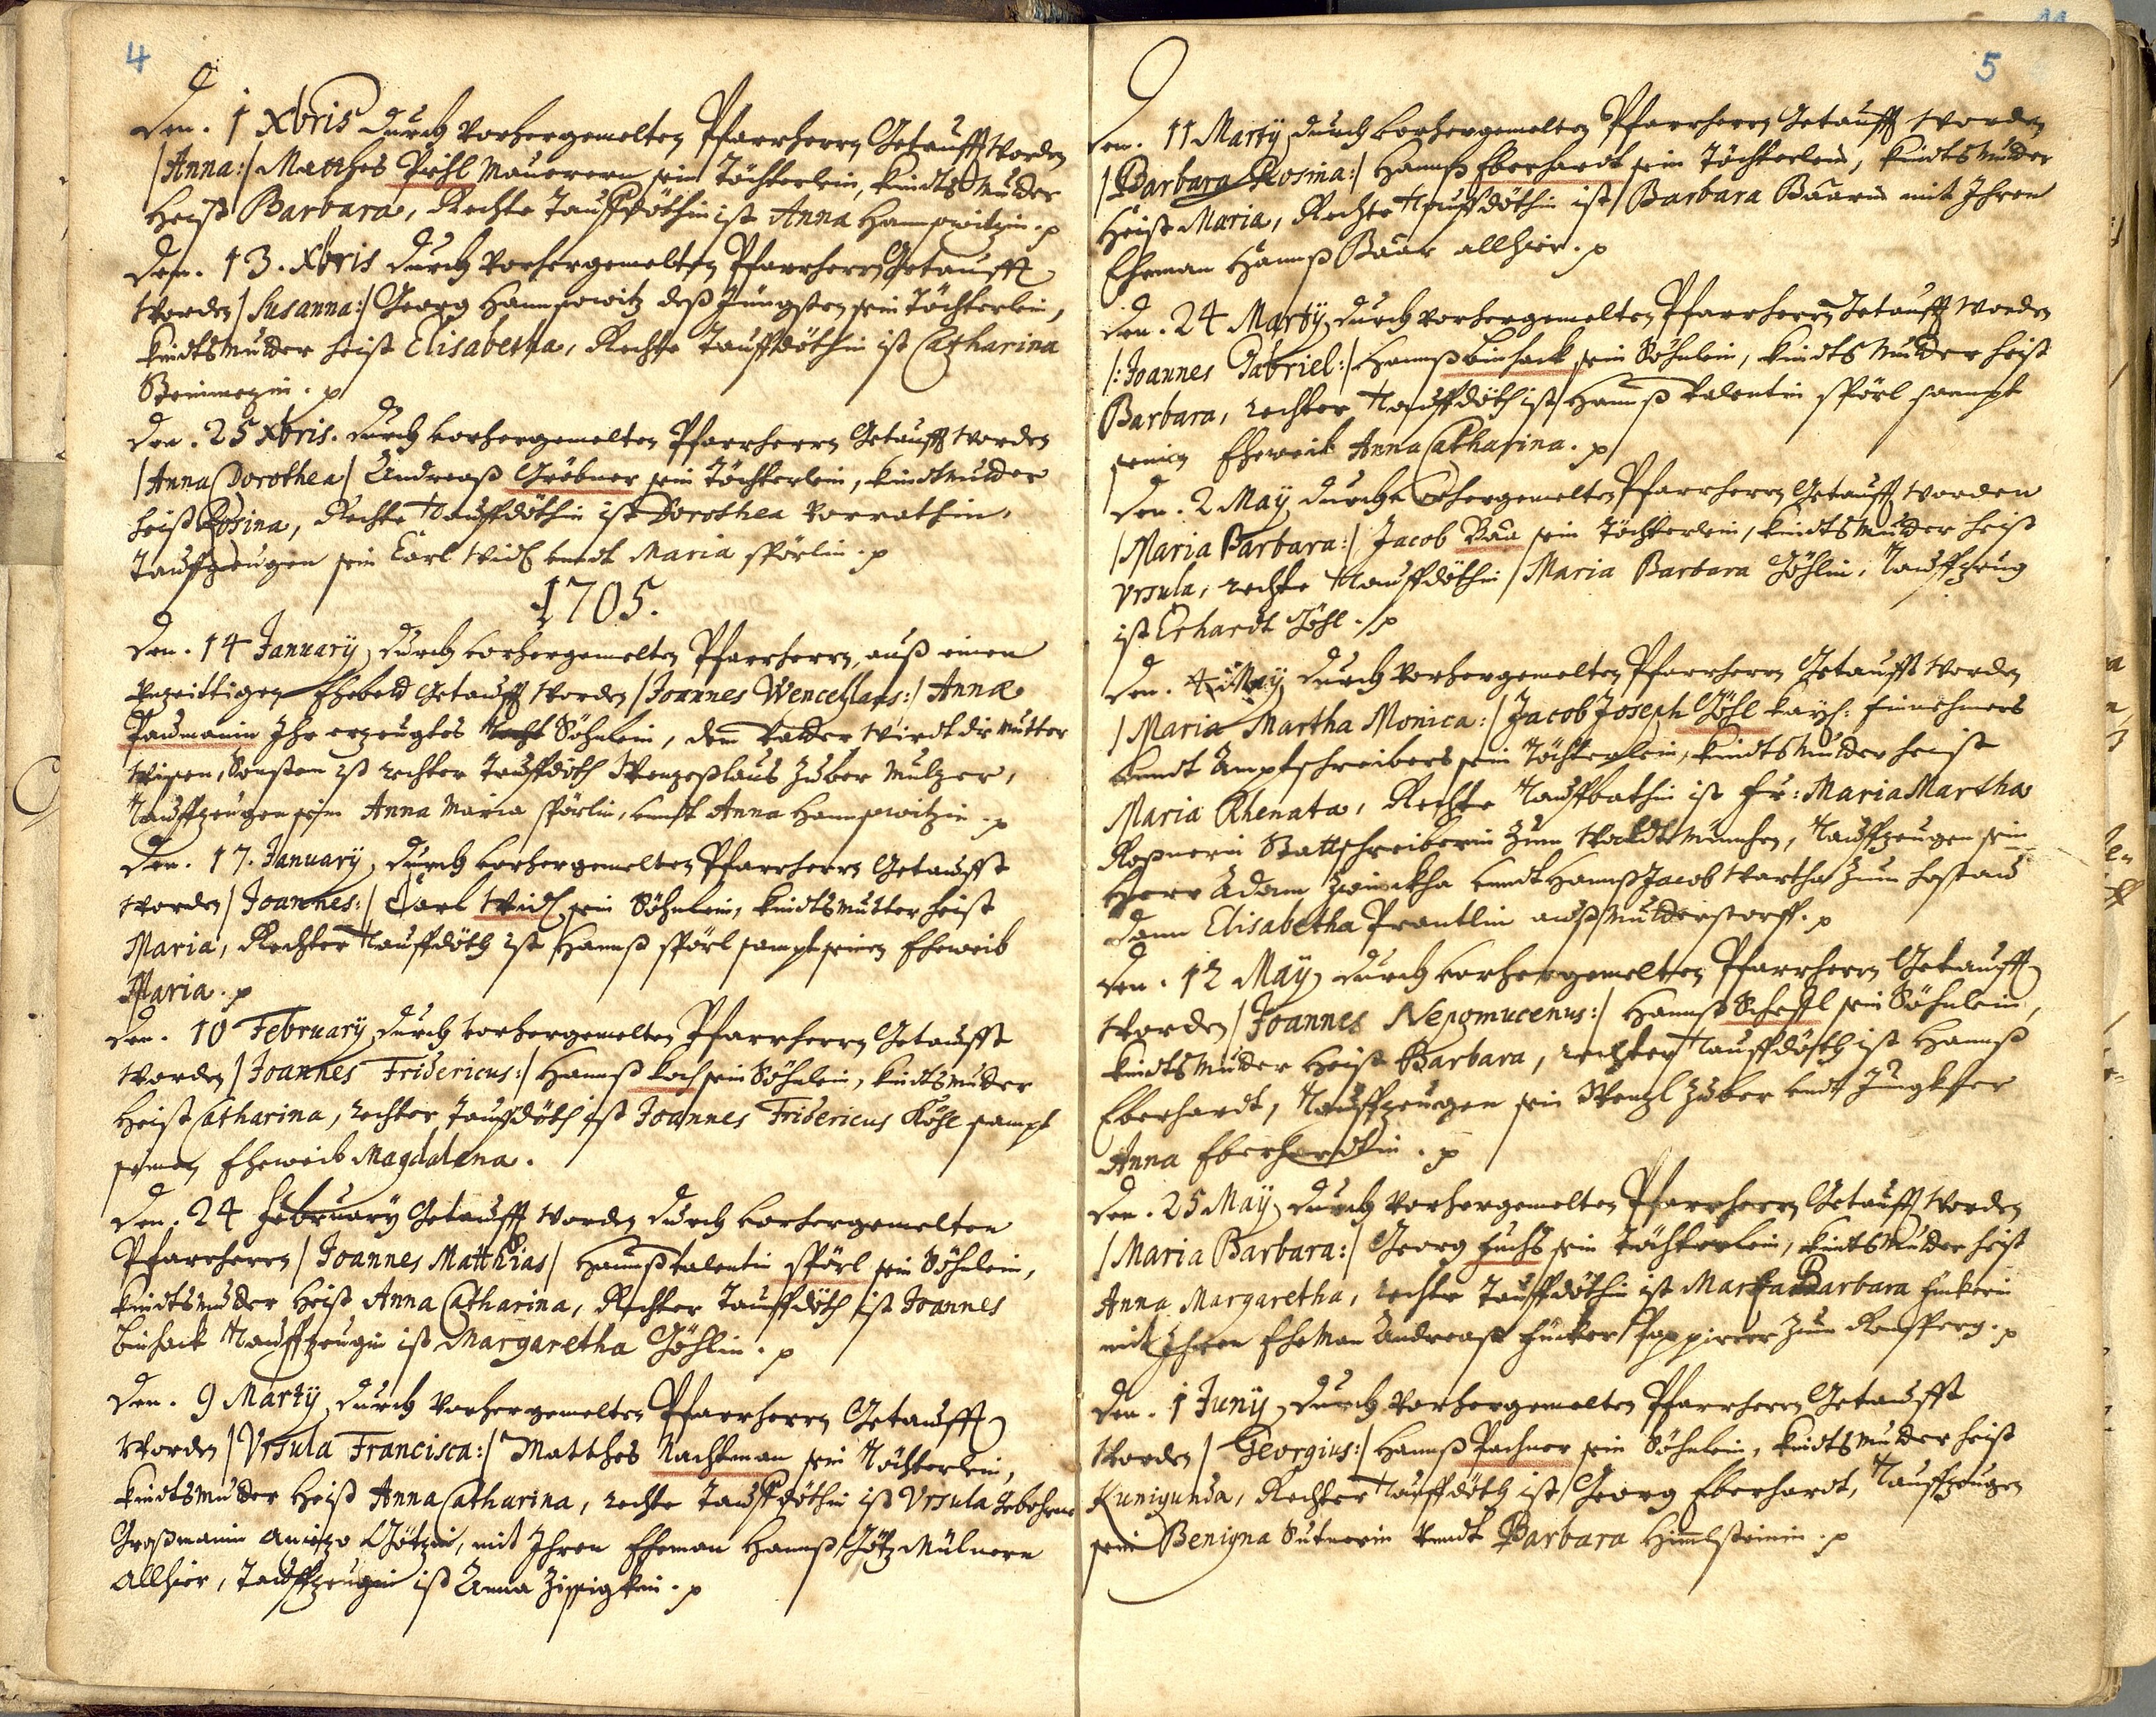 4
Den. 1 Xbris durch vorhergemelten Pfarrherrn Getaufft worden
/Anna:/ Matthes Pihl Maurern sein Töchterlein, Kindts Mutter
heist Barbara, Rechte Tauffdöthin ist Anna Hanßowitzin. p
Den. 13. Xbris durch vorhergemelten Pfarrherrn Getaufft
worden /Susanna:/ Georg Hanßowitz deß Jüngsten sein Töchterlein,
Kindts Mutter heist Elisabetha, Rechte Tauffdöthin ist Catharina
Steinmezin. p
Den. 25 Xbris. durch vorhergemelten Pfarrherrn Getaufft worden
/Anna Dorothea/ Andreaß Gröbner sein Töchterlein, Kindtmutter
heist Rosina, Rechte Tauffdöthin ist Dorothea Vorrathin.
Tauffzeugen sein Carl Widl vndt Maria Spörlin. p
1705.
Den. 14 January, durch vorhergemelten Pfarrherrn, auß einen
Vnzeittigen Ehebeth Getaufft worden /Joannes Wenceslaus:/ Anna
Paumanin Ihr erzeugtes Söhnlein, dem Vatter wirdt die Mutter
wissen, Sonsten ist rechter Tauffdöth Wenzeßlaus Zuber Mulzer,
Tauffzeugen sein Anna Maria Spörlin, vndt Anna Hanßowitzin. p
Den. 17. January, durch vorhergemelten Pfarrherrn Getaufft
worden /Joannes:/ Carl Widl sein Söhnlein, Kindtsmutter heist
Maria, Rechter Tauffdöth ist Hannß Spörl sampt seinen Eheweib
Maria. p
Den. 10 February, durch vorhergemelten Pfarrherrn Getaufft
worden /Joannes Fridericus:/ Hannß Koch sein Söhnlein, Kindtsmutter
heist Catharina, rechter Tauffdöth ist Joannes Fridericus Göhl sampt
seinen Eheweib Magdalena.
Den. 24 February Getaufft worden durch vorhergemelten
Pfarrherrn /Joannes Matthias/ Hannß Valentin Spörl sein Söhnlein,
Kindtsmutter heist Anna Catharina, Rechter Tauffdöth ist Joannes
Binhack Tauffzeugin ist Margaretha Göhlin. p
Den. 9 Marty, durch vorhergemelten Pfarrherrn Getaufft
worden /Vrsula Francisca:/ Matthes Nachtman sein Töchterlein,
Kindtsmutter heist Anna Catharina, rechte Tauffdöthin ist Vrsula Gebohrne
Großmanin aniezo Götzin, mit Ihren Eheman Hannß Götz Mülnern
allhier, Tauffzeugin ist Anna
5
Den. 11 Marty, durch vorhergemelten Pfarrherrn Getaufft worden
/Barbara Rosina:/ Hannß Eberhardt sein Töchterlein, Kindtsmutter
heist Maria, Rechte Tauffdöthin ist Barbara Bäärin mit Ihren
Eheman Hannß Bäär allhier. p
Den. 24 Marty, durch vorhergemelten Pfarrherrn Getaufft worden
/:Joannes Gabriel:/ Hannß Binhack sein Söhnlein, Kindts Mutter heist
Barbara, rechter Tauffdöth ist Hannß Valentin Spörl sampt
seinen Eheweib Anna Catharina. p
Den. 2 May, durch vorhergemelten Pfarrherrn Getaufft worden
/Maria Barbara:/ Jacob Bäu sein Töchterlein, Kindtsmutter heist
Vrsula, rechte Tauffdöthin Maria Barbara Göhlin, Tauffzeug
ist Erhardt Göhl. p
Den. 4 May, durch vorhergemelten Pfarrherrn Getaufft worden
/Maria Martha Monica:/ Jacob Joseph Göhl Kayl: Einnehmers
vnndt Amptschreibers sein Töchterlein, Kindtsmutter heist
Maria Rhenata, Rechte Tauffbathin ist Fr: Maria Martha
Roßnerin Stattschreiberin Zum Waldtmünchen, Tauffzeugen sein
Herr Adam vnndt Hannß Jacob Wartha Zum Hostau
dann Elisabetha Prantlin auß Mutterstorff. p
Den. 12 May, durch vorhergemelten Pfarrherrn Getaufft
worden /Joannes Nepomucenus:/ Hannß Scheffl sein Söhnlein,
Kindtsmutter heist Barbara, rechter Tauffdöth ist Hannß
Eberhardt, Tauffzeugen sein Wenzl Zuber vndt Jungkfer
Anna Eberhardtin. p
Den. 25 May, durch vorhergemelten Pfarrherrn Getaufft worden
/Maria Barbara:/ Georg Fuchs sein Töchterlein, Kindtsmutter heist
Anna Margaretha, rechte Tauffdöthin ist Maria Barbara Fückerin
mit Ihren Eheman Andreaß Fücker Pappierer Zum p
Den. 1 Juny, durch vorhergemelten Pfarrherrn Getaufft
worden /Georgius:/ Hannß Pachner sein Söhnlein, Kindtsmutter heist
Kunigunda, Rechter Tauffdöth ist Georg Eberhardt, Tauffzeugen
sein Benigna Sutnerin vnndt Barbara Himlsteinin. p